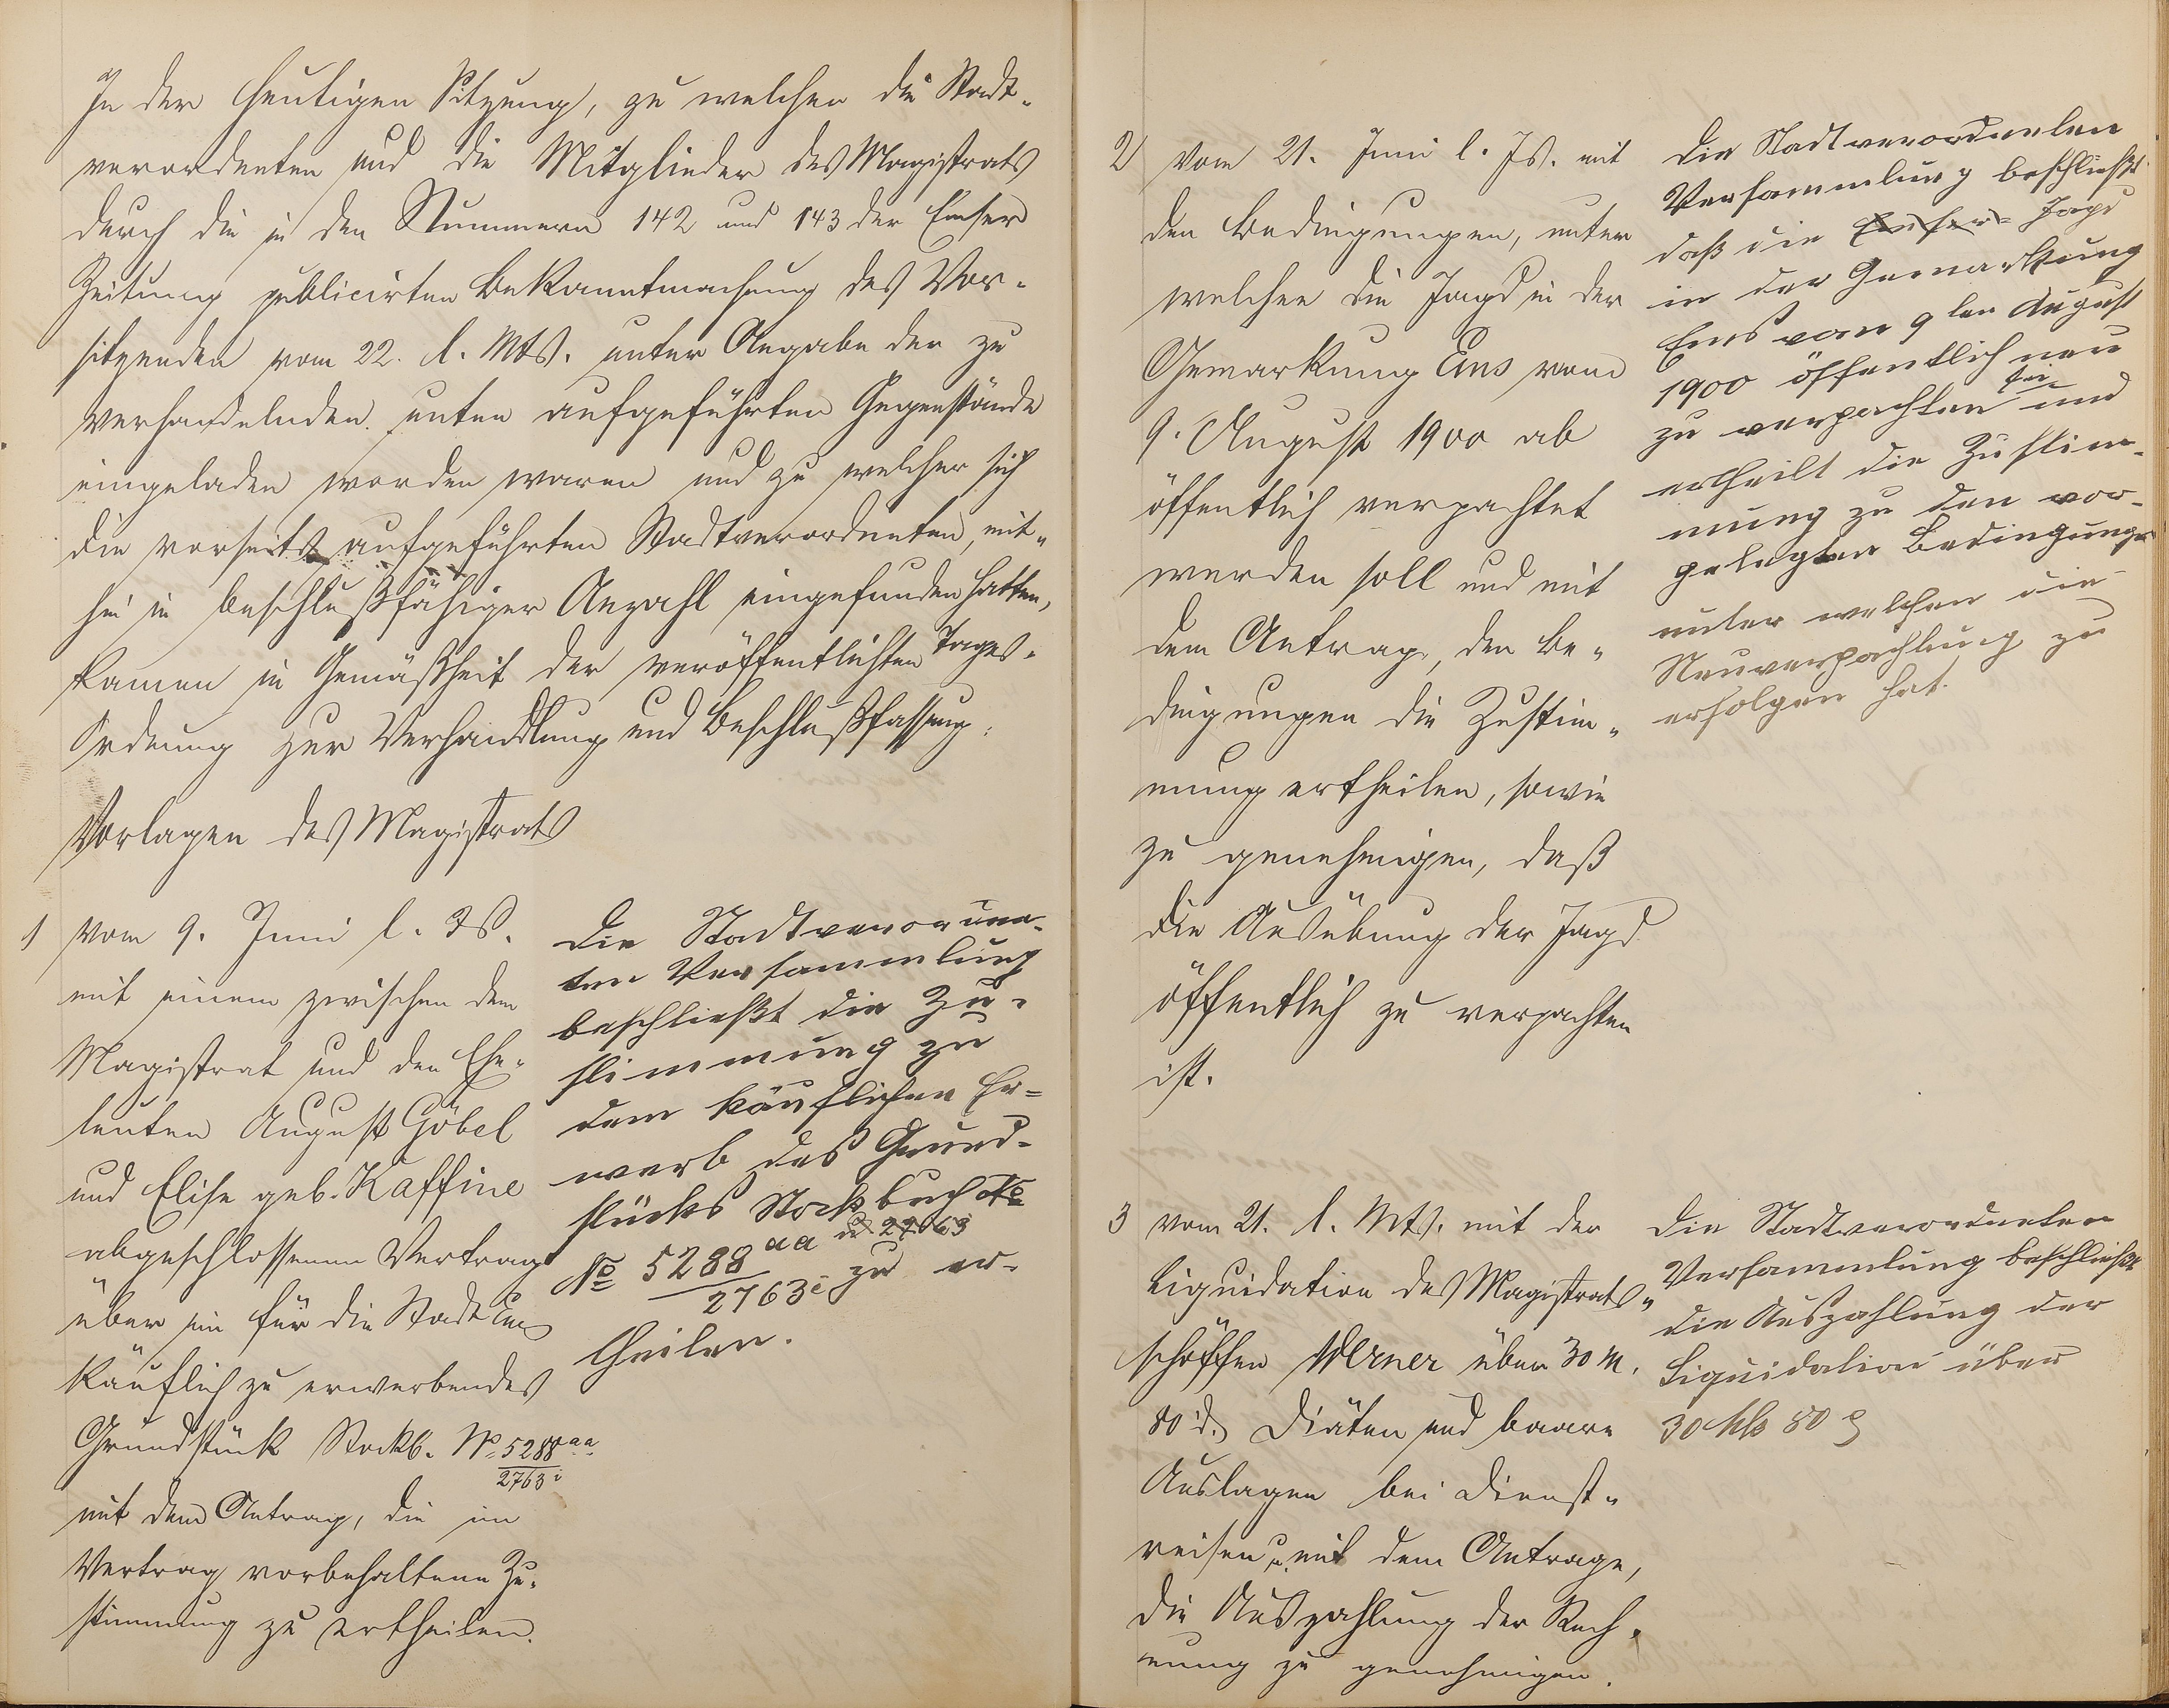 In der heutigen Sitzung, zu welcher die Stadt-
verordneten und die Mitglieder des Magistrats
durch die in den Nummern 142 und 143 der Emser
Zeitung publicirten Bekanntmachung des Vor-
sitzenden vom 22. l. Mts. unter Angabe der zu
verhandelnden unten aufgeführten Gegenstände
eingeladen worden waren und zu welcher sich
die vorseits aufgeführten Stadtverordneten, mit-
hin in beschlußfähiger Anzahl eingefunden hatten,
kamen in Gemäßheit der veröffentlichten Tages-
Ordnung zur Verhandlung und Beschlußfassung:
Vorlagen des Magistrats
1) vom 9. Juni l. Js.
mit einem zwischen dem
Magistrat und den Ehe-
leuten August Göbel
und Elise geb. Kaffine
abgeschlossenen Vertrag
über ein für die Stadt Ems
käuflich zu erwerbendes
Grundstück Stockb. No 5288 aa
2763 i
mit dem Antrag, die im
Vertrag vorbehaltene Zu-
stimmung zu ertheilen.
Die Stadtverordne-
ten Versammlung
beschließt die Zu-
stimmung zu
dem käuflichen Er-
werb des Grund-
stücks Stockbuch No
No 5288 aa
2763 i zu er-
theilen.
2) vom 21. Juni l. Js. mit
den Bedingungen, unter
welchen die Jagd in der
Gemarkung Ems vom
9. August 1900 ab
öffentlich verpachtet
werden soll und mit
dem Antrag, den Be-
dingungen die Zustim-
mung ertheilen, sowie
zu genehmigen, daß
die Ausübung der Jagd
öffentlich zu verpachten
ist.
Die Stadtverordneten
Versammlung beschließt
daß die Emser Jagd
in der Gemarkung
Ems vom 9ten August
1900 öffentlich neu
zu verpachten sei und
ertheilt die Zustim-
mung zu den vor-
gelegten Bedingungen
unter welchen die
Neuverpachtung zu
erfolgen hat.
3 vom 21. l. Mts. mit der
Liquidation des Magistrats-
schöffen Werner über 30 M.
80 d. Diäten und baare
Auslagen bei Dienst-
reisen u. mit dem Antrage,
die Auszahlung der Rech-
nung zu genehmigen.
Die Stadtverordneten
Versammlung beschließt
die Auszahlung der
Liquidation über
30 Mk 80 ₰